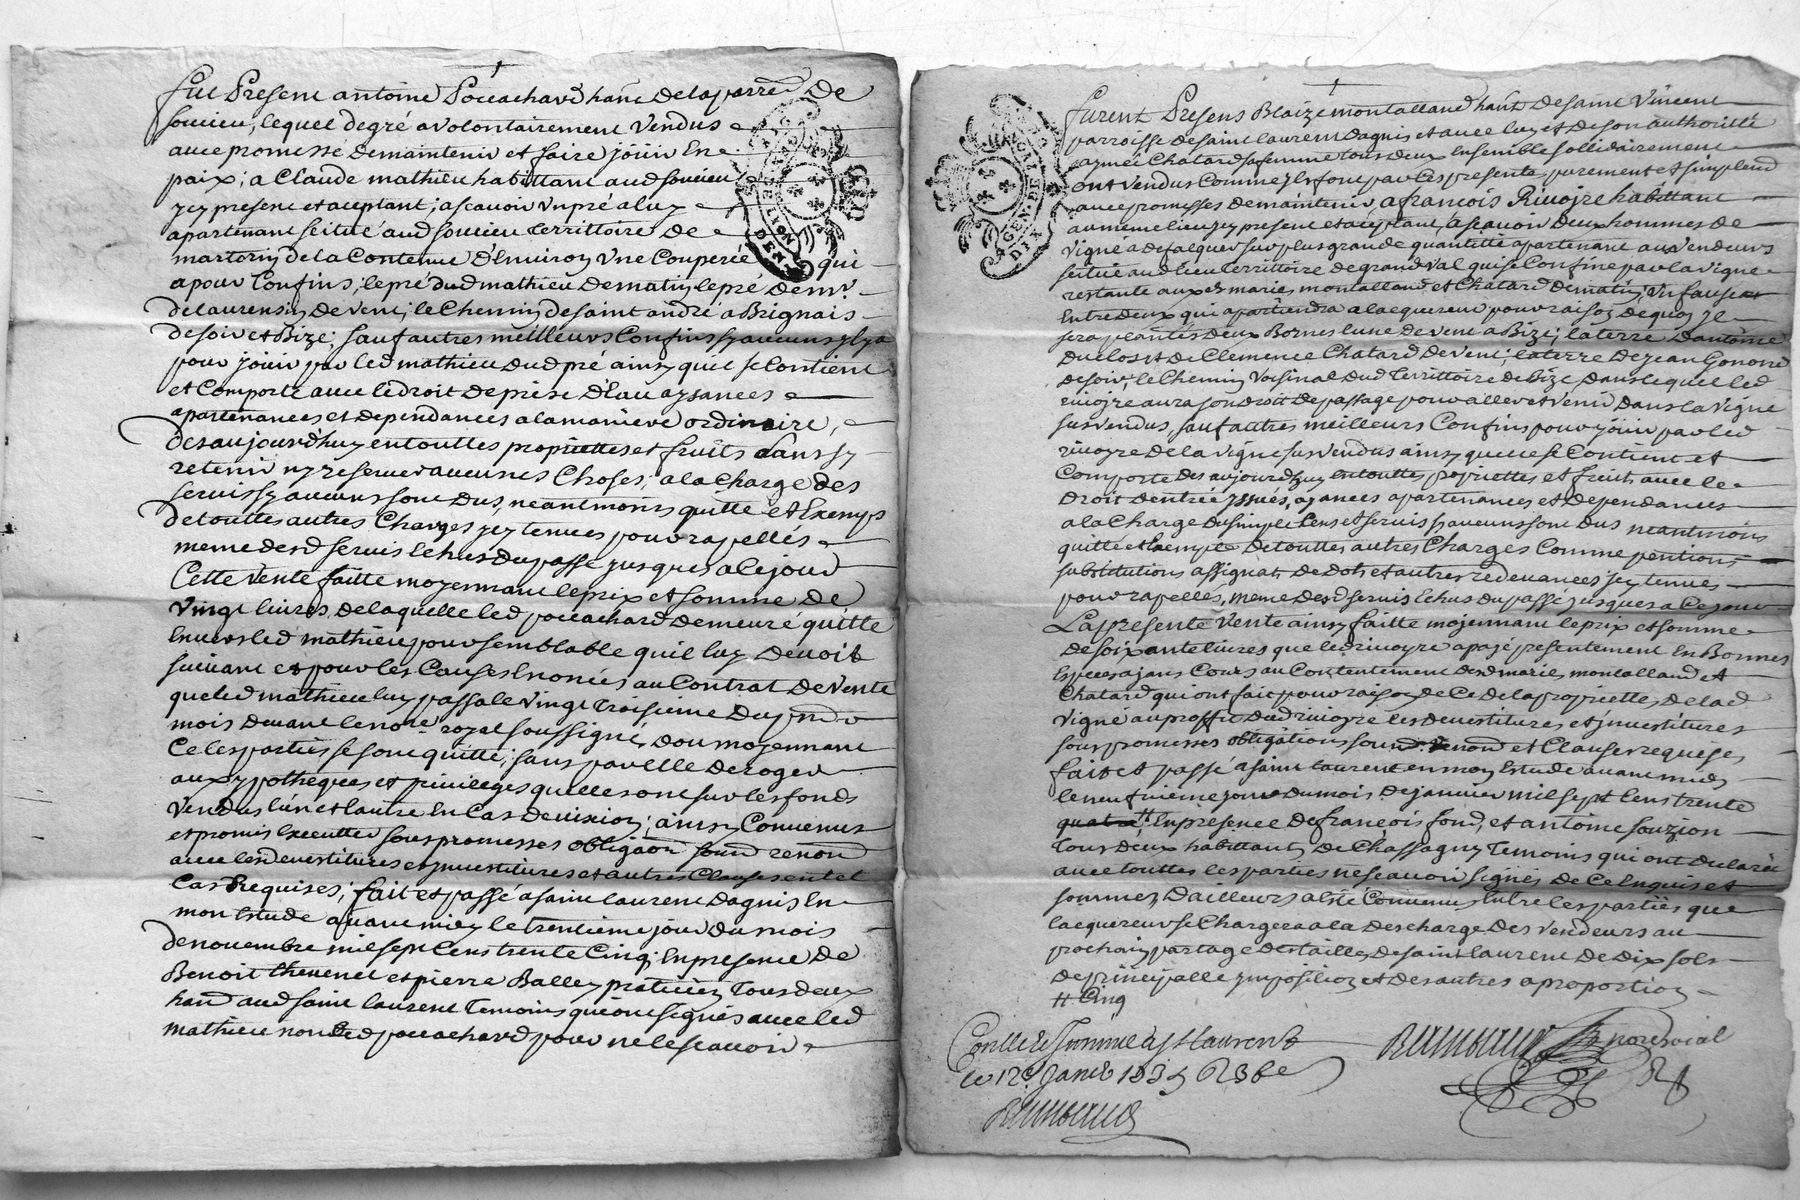 fut Present antoine Pouachard hant de la parr. De
soucieu, lequel de gré a volontairement vendus
avec promesse de maintenir et faire jöuir En
paix; a Claude mathieu habittant aud soucieu
jcy present et aceptant; ascavoir un pré a luy
apartenant scitué aud soucieu territtoire de
martorin de la Contenue d'Environ une Couperée qui
a pour Confins; le pré dud mathieu de matin, le pré de mr.
delaurensin de vent; le Chemin de saint andré a Brignais
de soir et Bize; sauf autres meilleurs Confins sy aucuns y'l y a
pour jöuir par led mathieu dud pré ainsy quil se Contient
et Comporte avec le droit de prise d'Eau aysances
apartenances et dependances a la maniere ordinaire,
des aujourd'huy en touttes proprettes et fruits sans sy
retenir ny reserver aucunes Choses; a la Charge des
servis sy aucuns sont dus, neantmoins quitte et Exemps
de touttes autres Charges jcy tenues pour rapellés
meme desd servis Echus du passé jusques a Ce jourd
Cette vente faitte moyennant le prix et somme de
vingt livres, de laquelle led pouachard demeure quitte
Envers led mathieu pour semblable qu'il luy devoit
suivant et pour les Causes Enoncés au Contrat de vente
que led mathieu luy passa le vingt troisieme du
mois devant le note royal soussigné, dou moyennant
Ce les parties se sont quitté; sans par Elle deroger
aux ypotheques et privileges qu'elles ont sur les fonds
vendus l'un et l'autre En Cas deviction; ainsy Convenus
et promis Executter sous promesses obligaon soumd renond
avec lesd devestitures et jnvestitures et autres Clauses en tel
Cas Requises; fait et passé a saint laurent dagnis En
mon Estude avant midy le trentieme jour du mois
de novembre mil sept Cens trente Cinq; En presence de
Benoit thevenet et pierre Balley praticien tous deux
hant aud saint laurent temoins qui ont signés avec led
mathieu non led pouachard pour ne le scavoir
furent Presens Blaize montalland hant de saint vincent
parroisse de saint laurent dagnis et avec luy et de son authoritté
aymée Chatard sa femme tous deux Ensemble sollidairement
ont vendus Comme jls font par Ces presente purement et simplemd
avec promesses de maintenir a francois Rivoire habittant
au meme lieu jcy present et aceptant, ascavoir deux hommes de
vigne a defalquer sur plus grande quantitté apartenant aux vendeurs
scitué aud lieu territtoire de grand val qui se Confine par la vigne
restante auxd mariés montalland et Chatard de matin, un
Entre deux qui apartiendra a lacquereur pour raison de quoy jl
sera plantés deux Bornes l'une de vent a Bize; la terre d'antoine
duclos et de Clemence Chatard de vent; la terre de jean Gonond
de soir, le Chemin voisinal dud territtoire de Bize, dans lequel led
rivoire aura son droit de passage pour aller et venir dans la vigne
sus vendus, sauf autres meilleurs Confins pour jöuir par led
rivoyre de la vigne sus vendus ainsy quelle se Contient et
Comporte des aujourd'huy en touttes propriettes et fruits avec le
Droit d'entrée jssues, ajances apartenances et dependances
a la Charge du simple Cens et servis sy aucuns sont dus neantmoins
quitte et Exempte de touttes autres Charges Comme pentions
substitutions assignat, de dots et autres redevances jcy tenues
pour rapellés, meme desd servis Echus du passé jusques a Ce jour
La presente vente ainsy faitte mojennant le prix et somme
de soixante livres que led rivoyre a payé presentement En Bonnes
Especes ajans Cours au Contentement desd mariés montalland et
Chatard qui ont fait pour raison de Ce de la propriette de lad
vigne au proffit dud rivoyre les devestitures et jnvestitures
sous promesses obligations soumd. renond et Clauses requises
fait et passé a saint laurent en mon Estude avant midy
le neufvieme jour du mois de janvier mil sept Cens trente
quatre ++ En presence de francois fond, et antoine souzion
tous deux habittants de Chassagny temoins qui ont declaré
avec touttes les parties ne scavoir signés de Ce Enquis et
sommez, d'ailleurs a Eté Convenus Entre les parties que
lacquereur se Chargera a la descharge des vendeurs au
prochain partage des tailles de saint laurent de dix sols
de principalle jmposition et des autres a proportion
++ Cinq
Conllé le St Laurent
le 12e Janer 1735
GEN. DE LYON
DIX DEN